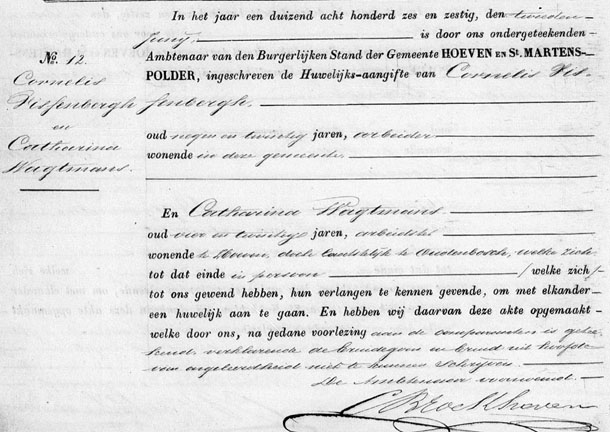 In het jaar een duizend acht honderd zes en zestig, den tweeden
Junij is door ons ondergeteekenden
Ambtenaar van den Burgerlijken Stand der Gemeente HOEVEN EN St. MARTENS-
POLDER, ingeschreven de Huwelijks-aangifte van Cornelis Dis-
senbergh.
oud negen en twintig jaren, arbeider
wonende in deze gemeente
No. 12.
Cornelis
en
Catharina
Wagtmans.
En Catharina Wagtmans
oud vier en twintig jaren, arbeidster
wonende te Hoeven, doch laatstelijk te Oudenbosch, welke zich
tot dat einde in persoon / welke zich /
tot ons gewend hebben, hun verlangen te kennen gevende, om met elkander
een huwelijk aan te gaan. En hebben wij daarvan deze akte opgemaakt
welke door ons, na gedane voorlezing aan de comparanten is getee-
kend, verklarende de bruidegom en bruid uit hoofde
van ongeleerdheid niet te kunnen schrijven.
De Ambtenaar voornoemd.